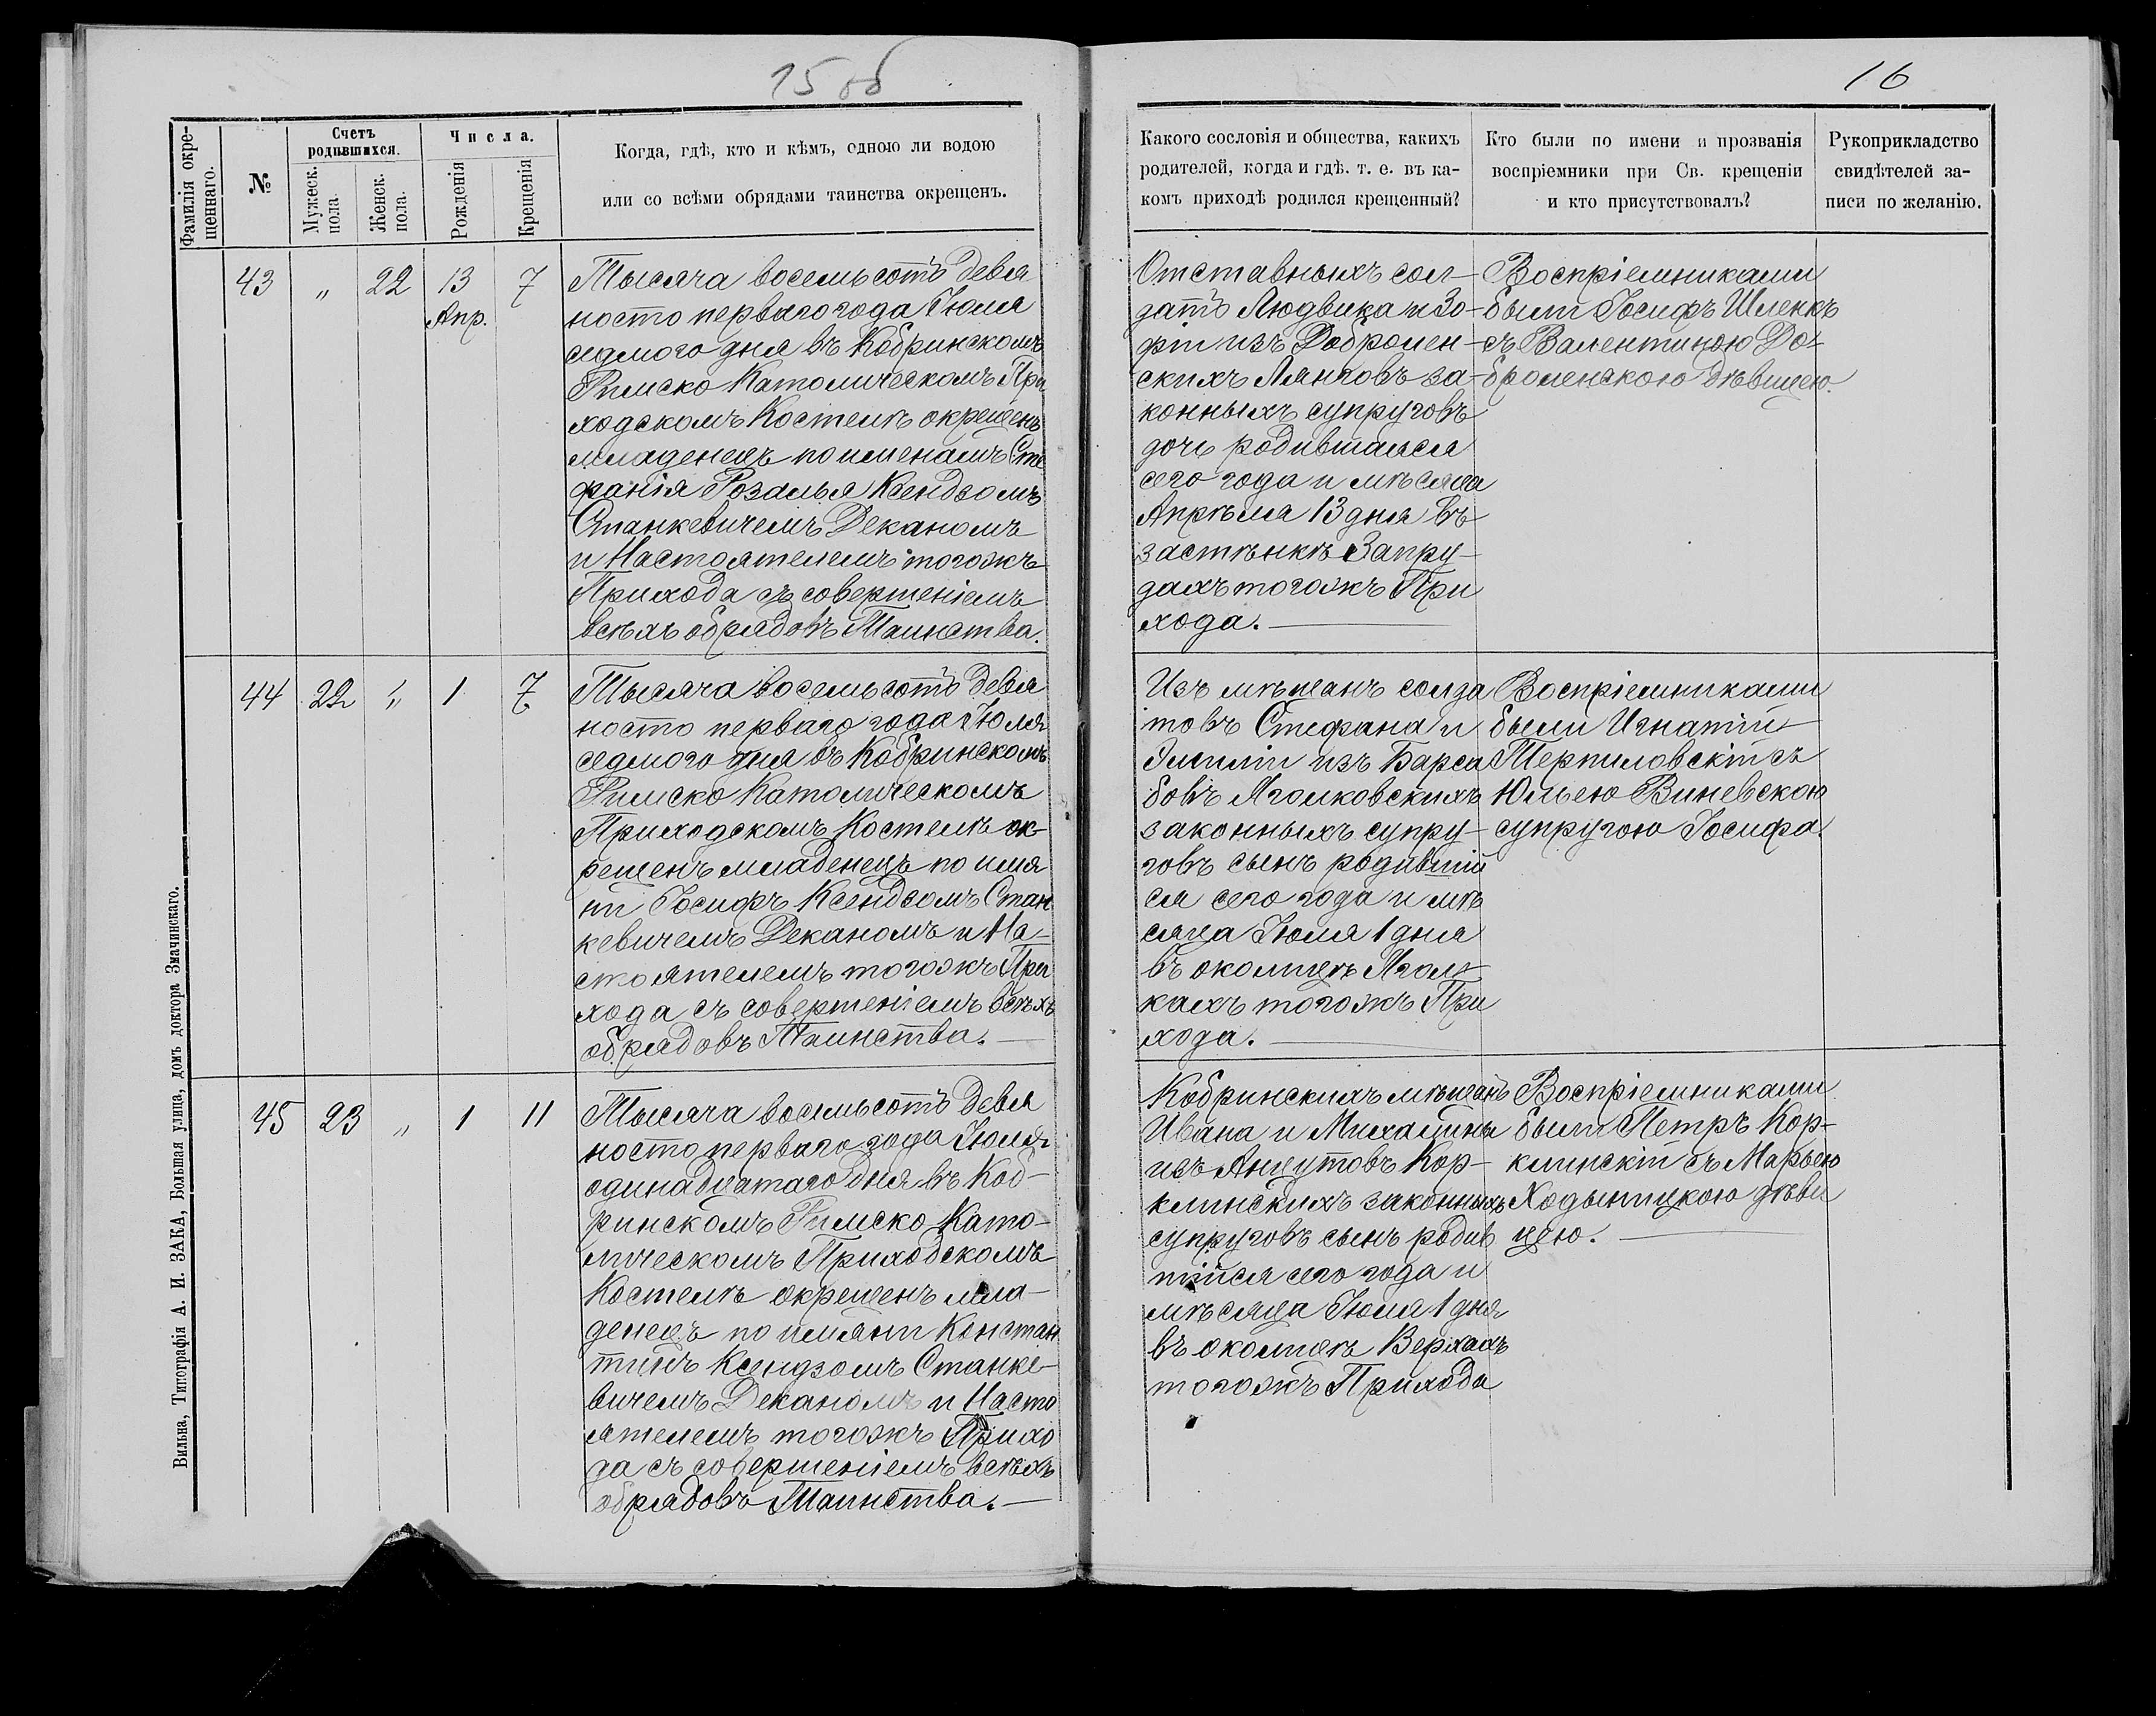 15 об
16
Фамилія окре-
щеннаго.
№
Счетъ
родившихся.
Мужеск.
пола.
Женск.
пола.
Числа.
Рожденія
Крещенія
Когда, гдѣ, кто и кѣмъ, одною ли водою
или со всѣми обрядами таинства окрещенъ.
Какого сословія и общества, какихъ
родителей, когда и гдѣ. т. е. въ ка-
комъ приходѣ родился крещенный?
Кто были по имени и прозванія
воспріемники при Св. крещеніи
и кто присутствовалъ?
Рукоприкладство
свидѣтелей за-
писи по желанію.
43 „ 22 13 7
Апр.
Тысяча восемьсотъ девя
носто перваго года Іюля
седмого дня въ Кобринскомъ
Римско Католическомъ При
ходскомъ Костелѣ окрещенъ
младенецъ по именамъ Сте
фанія Розалья Ксендзомъ
Станкевичемъ Деканомъ
и Настоятелемъ тогожъ
Прихода съ совершеніемъ
всѣхъ обрядовъ Таинства.
Отставныхъ сол-
датъ Людвика и Зо-
фіи изъ Добролен-
скихъ Лянговъ за-
конныхъ супруговъ
дочь родившаяся
сего года и мѣсяца
Апрѣля 13 дня въ
застѣнкѣ Запру-
дахъ тогожъ При
хода.
Воспріемниками
были Іосифъ Шленкъ
съ Валентиною До-
броленскою дѣвицею.
44 22 „ 1 7
Тысяча восемьсотъ девя
носто перваго года Іюля
седмого дня въ Кобринскомъ
Римско Католическомъ
Приходскомъ Костелѣ ок-
рещенъ младенецъ по имя
ни Іосифъ Ксендзомъ Стан
кевичемъ Деканомъ и На-
стоятелемъ тогожъ При
хода съ совершеніемъ всѣхъ
обрядовъ Таинства.
Изъ мѣщанъ солда
товъ Стефана и
Эмиліи изъ Барса
бовъ Яголковскихъ
законныхъ супру-
говъ сынъ родивший
ся сего года и мѣ
сяца Іюля 1 дня
въ околицѣ Ягол-
кахъ тогожъ При
хода.
Воспріемниками
были Игнатій
Терпиловскій съ
Юльею Виневскою
супругою Іосифа.
45 23 „ 1 11
Тысяча восемьсотъ девя
носто перваго года Іюля
одинадцатаго дня въ Коб-
ринскомъ Римско Като-
лическомъ Приходскомъ
Костелѣ окрещенъ мла-
денецъ по имяни Констан
тинъ Ксендзомъ Станке-
вичемъ Деканомъ и Насто
ятелемъ тогожъ Прихо
да съ совершеніемъ всѣхъ
обрядовъ Таинства.
Кобринскихъ мѣщанъ
Ивана и Михалины
изъ Анцутовъ Кор-
клинскихъ законныхъ
супруговъ сынъ родив
шійся сего года и
мѣсяца Іюля 1 дня
въ околицѣ Верхахъ
тогожъ Прихода
Воспріемниками
были Петръ Кор-
клинскій съ Марьею
Ходыницкою дѣви
цею.
Вильна, Типографія А. И. ЗАКА, Большая улица, домъ доктора Змачинскаго.